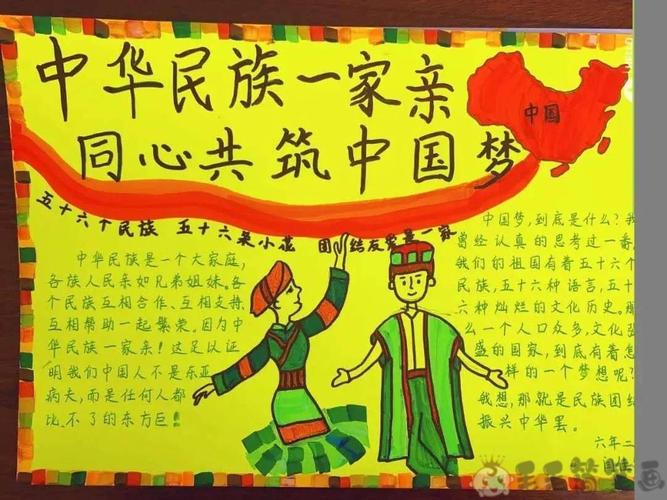 中华民族一家亲
同心共筑中国梦
中国
五十六个民族 五十六朵小花 团结友爱是一家
中华民族是一个大家庭，
各族人民亲如兄弟姐妹。各
个民族互相合作、互相支持、
互相帮助一起繁荣。因为中
华民族一家亲！这足以证
明我们中国人不是东亚
病夫，而是任何人都
比不了的东方巨！！
中国梦，到底是什么？我
曾经认真的思考过一番，
我们的祖国有着五十六个
民族，五十六种语言，五十
六种灿烂的文化历史。那
么一个人口众多，文化强
盛的国家，到底有着怎
样的一个梦想呢？
我想，那就是民族团结
振兴中华罢。
六年二
毛毛简笔画